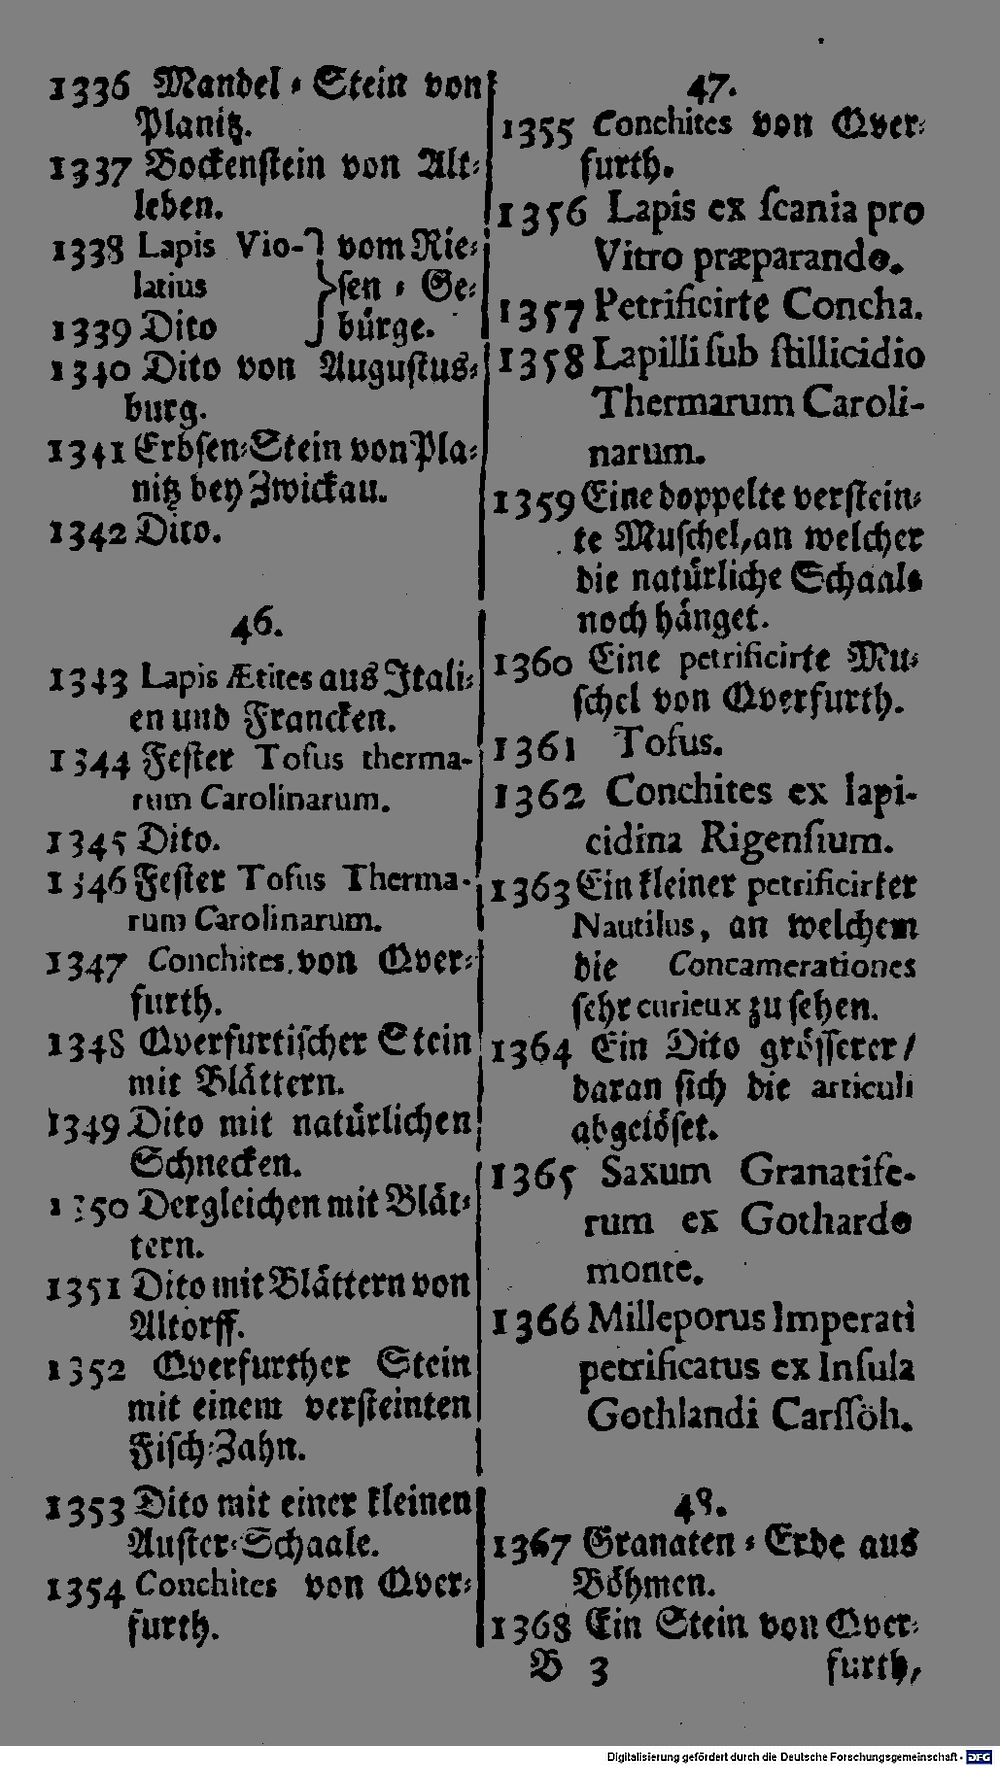 1336 Mandel⸗Stein von
Planitz.
1337 Bockenſtein von Alt⸗
leben.
1338 Lapis Vio- } vom Rie⸗
latius } ſen⸗Ge⸗
1339 Dito } bürge.
1340 Dito von Auguſtus⸗
burg.
1341 Erbſen⸗Stein von Pla⸗
nitz bey Zwickau.
1342 Dito.
46.
1343 Lapis Ætites aus Itali⸗
en und Francken.
1344 Feſter Tofus therma-
rum Carolinarum.
1345 Dito.
1346 Feſter Tofus Therma-
rum Carolinarum.
1347 Conchites von Qver⸗
furth.
1348 Qverfurtiſcher Stein
mit Blättern.
1349 Dito mit natürlichen
Schnecken.
1350 Dergleichen mit Blät⸗
tern.
1351 Dito mit Blättern von
Altorff.
1352 Qverfurther Stein
mit einem verſteinten
Fiſch⸗Zahn.
1353 Dito mit einer kleinen
Auſter⸗Schaale.
1354 Conchites von Qver⸗
furth.
47.
1355 Conchites von Qver⸗
furth.
1356 Lapis ex ſcania pro
Vitro præparando.
1357 Petrificirte Concha.
1358 Lapilli ſub ſtillicidio
Thermarum Caroli-
narum.
1359 Eine doppelte verſtein⸗
te Muſchel, an welcher
die natürliche Schaale
noch hänget.
1360 Eine petrificirte Mu⸗
ſchel von Qverfurth.
1361 Tofus.
1362 Conchites ex lapi-
cidina Rigenſium.
1363 Ein kleiner petrificirter
Nautilus, an welchem
die Concamerationes
ſehr curieux zu ſehen.
1364 Ein Dito gröſſerer/
daran ſich die articuli
abgelöſet.
1365 Saxum Granatife-
rum ex Gothardo
monte.
1366 Milleporus Imperati
petrificatus ex Inſula
Gothlandi Carſſöh.
48.
1367 Granaten⸗Erde aus
Böhmen.
1368 Ein Stein von Qver⸗
B 3 furth,
Digitalisierung gefördert durch die Deutsche Forschungsgemeinschaft - DFG